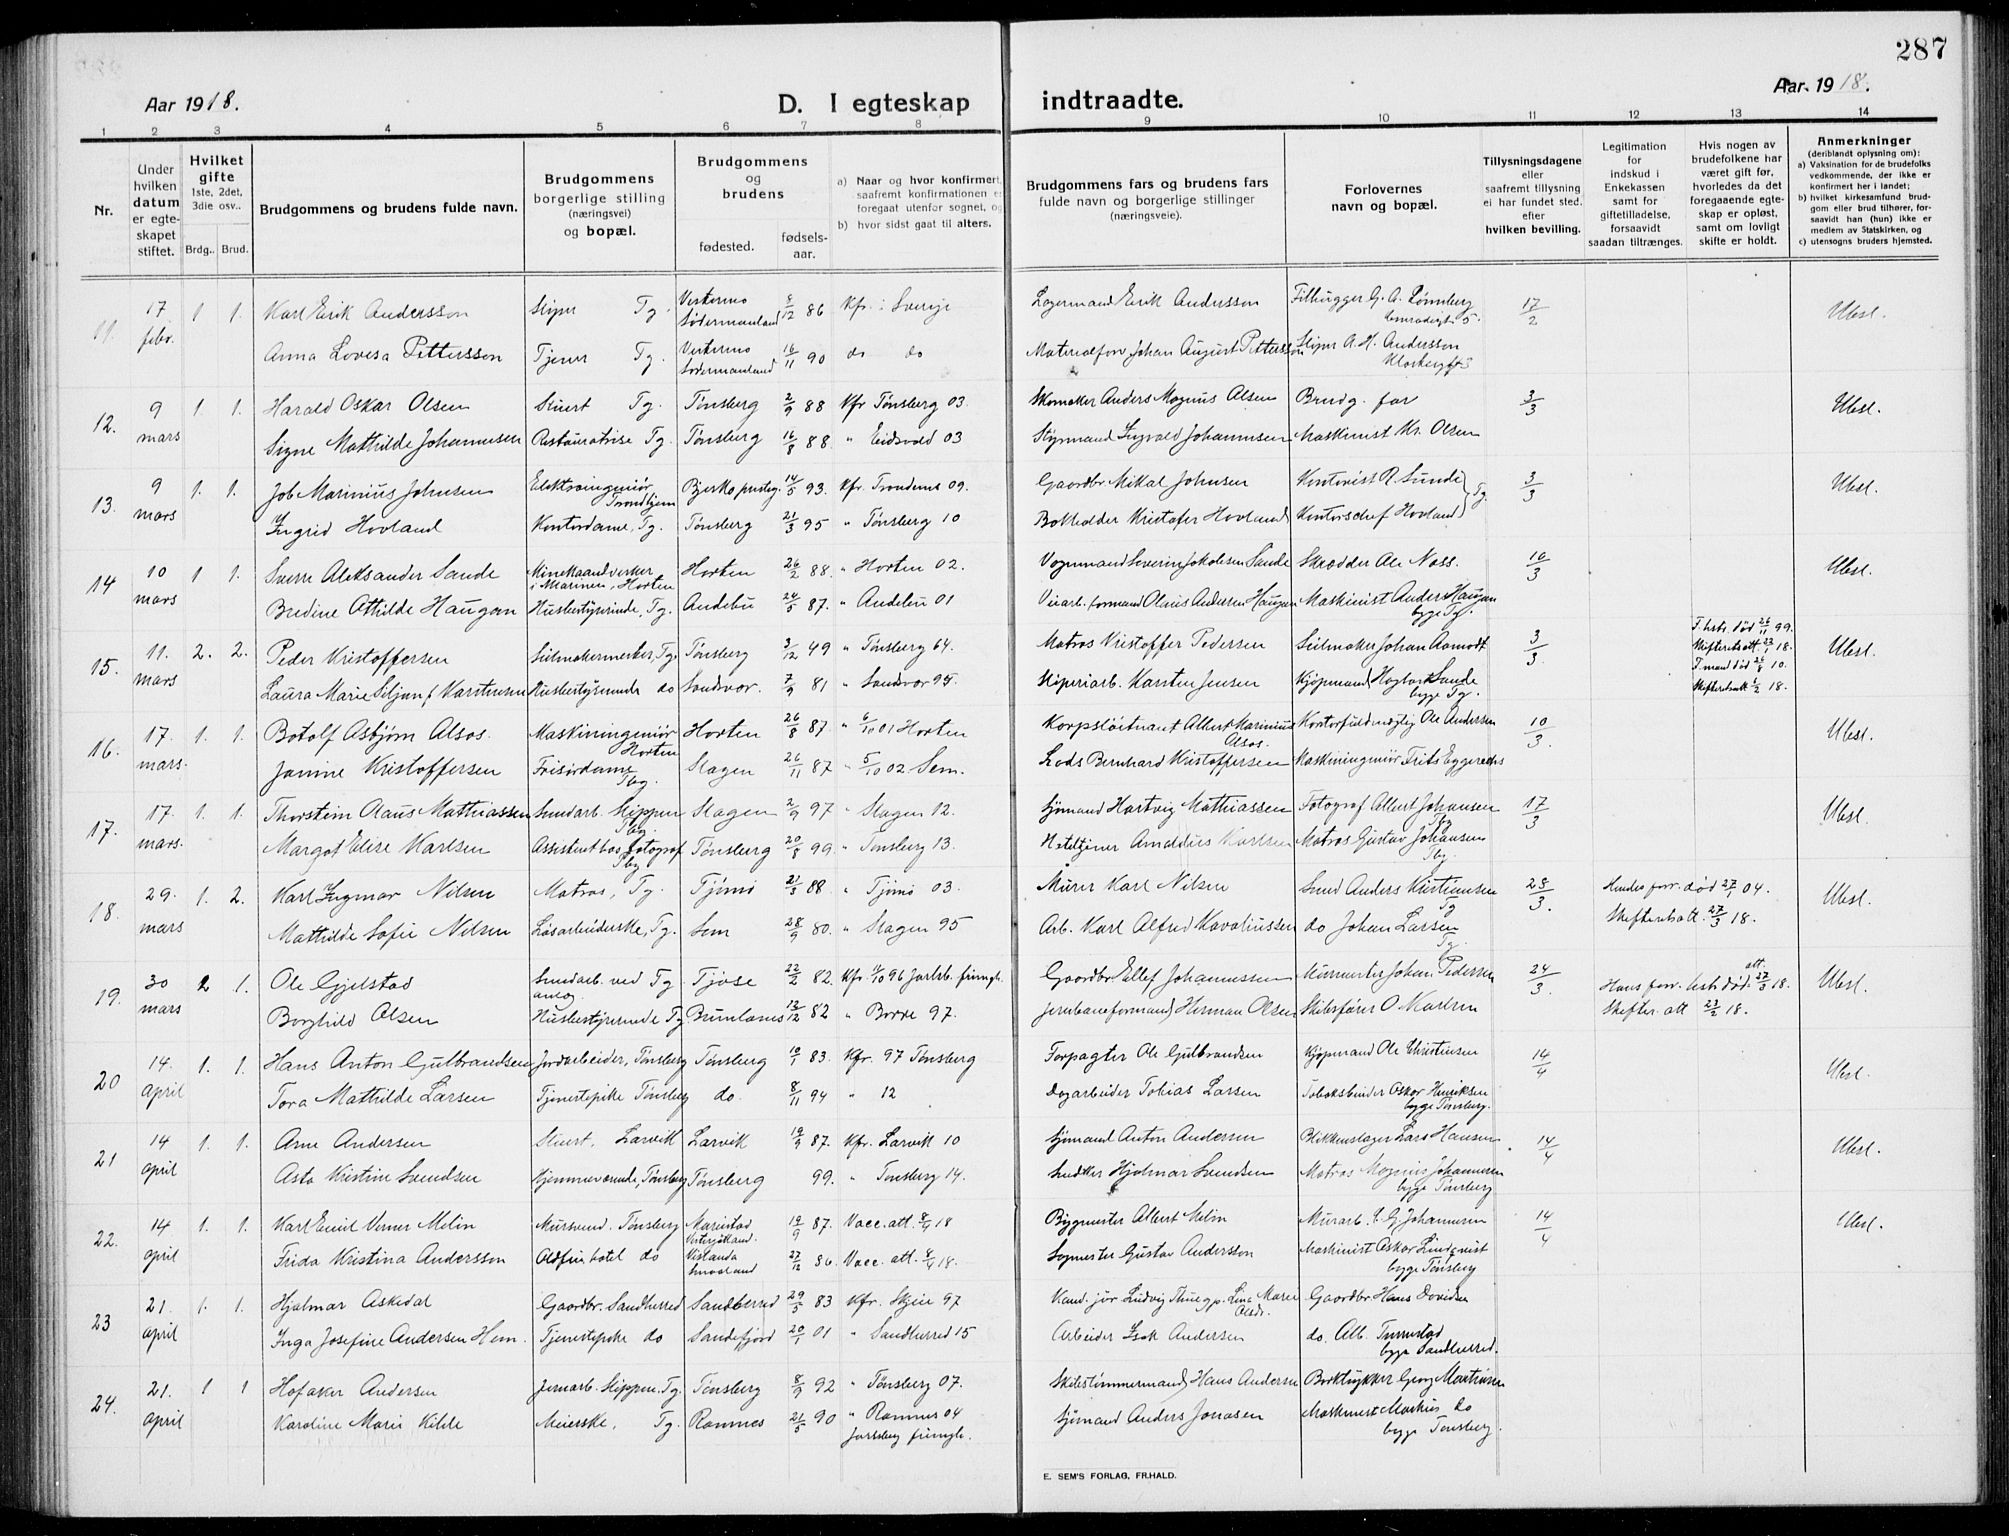 287
Aar 1918.
Aar 1918.
D. I egteskap
indtraadte.
1 2 3 4 5 6 7 8 9 10 11 12 13 14
Nr.
Under hvilken datum er egteskapet stiftet.
Hvilket gifte 1ste, 2det, 3die osv..
Brdg.. Brud.
Brudgommens og brudens fulde navn.
Brudgommens borgerlige stilling (næringsvei) og bopæl.
Brudgommens og brudens
fødested.
fødsels-aar.
a) Naar og hvor konfirmert, saafremt konfirmationen er foregaat utenfor sognet, og
b) hvor sidst gaat til alters.
Brudgommens fars og brudens fars fulde navn og borgerlige stillinger (næringsveie).
Forlovernes navn og bopæl.
Tillysningsdagene eller saafremt tillysning ei har fundet sted. efter hvilken bevilling.
Legitimation for indskud i Enkekassen samt for giftetilladelse, forsaavidt saadan tiltrænges.
Hvis nogen av brudefolkene har været gift før, hvorledes da det foregaaende egteskap er opløst, samt om lovligt skifte er holdt.
Anmerkninger (deriblandt oplysning om):
a) Vaksination for de brudefolks vedkommende, der ikke er konfirmert her i landet;
b) hvilket kirkesamfund brudgom eller brud tilhører, forsaavidt han (hun) ikke er medlem av Statskirken, og
c) utensogns bruders hjemsted.
11. 17 febr. 1 1. Karl Erik Andersson Sliper Tg. Vestermo Södermanland 8/12 86 Kfr. i Sverige Lagermand Erik Andersson Filhugger G. A. Lönnberg 17/2 Ubsl.
Anna Lovisa Pettersson Tjener Tg. Vestermo Södermanland 16/11 90 do do Materialforv Johan August Pettersson Sliper A. H. Andersson
12. 9 mars 1. 1. Harald Oskar Olsen Stuert Tg. Tønsberg 2/9 88 Kfr Tønsberg 03. Skomaker Anders Magnus Olsen Brudg. far 3/3 Ubsl.
Signe Mathilde Johannesen Restauratrise Tg. Tønsberg 16/8 88 " Eidsvold 03 Styrmand Ingvald Johannesen Maskinist Kr. Olsen
13. 9 mars 1. 1. Job Marinius Johnsen Elektroingeniør Trondhjem 14/5 93. Kfr. Trondenes 09. Gaardbr Mikal Johnsen Kontorist R. Sunde 3/3 Ubsl.
Ingrid Hovland Kontordame, Tg. Tønsberg 21/3 95 " Tønsberg 10 Bokholder Kristofer Hovland Kontorschef Hovland Tg.
14 10 mars 1 1. Sverre Aleksander Sande Minehaandverker i Marinen, Horten Horten 26/2 88. " Horten 02. Vognmand Severin Jakobsen Sande Skrædder Ole Næss. 10/3 Ubsl.
Bredine Othilde Haugan Husbestyrerinde, Tg. Andebu 24/5 87. " Andebu 01 Veiarb. formand Olaus Andersen Haugan Maskinist Anders Haugan begge Tg.
15. 11. mars 2. 2. Peder Kristoffersen Seilmakermester, Tg. Tønsberg 3/12 49 " Tønsberg 64. Matros Kristoffer Pedersen Seilmaker Johan Aamodt 3/3. F. hstr. død 26/11 99. Skifteretsatt. 23/1 18. Ubsl.
Laura Marie Siljan f. Karstensen Husbestyrerinde do Sandvær. 7/9 81 " Sandvær 95. Skiperiarb. Karsten Jensen Kjøpmand Hagbart Sande begge Tg. F. mand død 26/8 10. Skifteretsatt 1/2 18.
16. 17. mars. 1. 1. Botolf Asbjørn Alsos. Maskiningeniør Horten Horten 26/8 87. " 6/10 01 Horten Korpsløitnant Albert Marinius Alsos. Kontorfuldmægtig Ole Andersen 10/3. Ubsl.
Janine Kristoffersen Frisørdame Tbg. Slagen 26/11 87 " 5/10 02 Sem. Lods Bernhard Kristoffersen Maskiningeniør Frits
17. 17. mars. 1. 1. Thorstein Olaus Mathiassen Smedarb. Kippen Tbg. Slagen 2/9 97 " Slagen 12. Sjømand Hartvig Mathiassen Fotograf Albert Johansen Tbg 17/3 Ubsl.
Margot Elise Karlsen Assistent hos fotograf Tbg Tønsberg 20/8 99. " Tønsberg 13. Hoteltjener Arnoldus Karlsen Matros Gustav Johansen Tbg.
18. 29. mars 1. 2. Karl Ingmar Nilsen Matros, Tg. Tjømø 21/3 88 " Tjømø 03. Murer Karl Nilsen Smed Anders Kristiansen Tg 28/3. Hendes forr. død 27/1 04. Ubsl.
Mathilde Sofie Nilsen Løsarbeiderske, Tg. Sem 28/9 80. " Slagen 95 Arb. Karl Alfred Kavaliussen do Johan Larsen Tg. Skifteretsatt. 27/3 18.
19. 30 mars 2 1. Ole Gjelstad Smedarb. ved Tg. Tjøse 22/2 82. Kfr. 4/10 96 Jarlsb. frimgh. Gaardbr. Ellef Johannessen Murmester Johan Pedersen 24/3. Hans forr. hustr død. att. 27/3 18. Ubsl.
Borghild Olsen Husbestyrerinde Tg Brunlanes 12/12 82 " Borre 97. Jernbaneformand Herman Olsen Skibsfører O. Karlsen Skifter. att 23/2 18.
20 14. april 1. 1. Hans Anton Gulbrandsen Jordarbeider, Tønsberg Tønsberg 10/1 83. Kfr. 97 Tønsberg Forpagter Ole Gulbrandsen Kjøpmand Ole Christensen 14/4 Ubsl.
Tora Mathilde Larsen Tjenestepike Tønsberg do. 8/11 94 " 12 Dagarbeider Tobias Larsen Tobaksbinder Oskar Henriksen begge Tønsberg.
21 14 april 1. 1. Arne Andersen Stuert, Larvik Larvik 19/9 87. Kfr. Larvik 10 Sjømand Anton Andersen Blikkenslager Lars Hansen 14/4 Ubsl.
Asta Kristine Svendsen Hjemmeværende, Tønsberg Tønsberg 99. " Tønsberg 14. Snedker Hjalmar Svendsen Matros Magnus Johannesen begge Tønsberg
22. 14 april 1. 1. Karl Emil Verner Melin Mursvend. Tønsberg Mariestad Vestergötland. 19/9 87. Vacc. att. 8/4 18 Bygmester Albert Melin Murarb. J. G. Johannesen 14/4 Ubsl.
Frida Kristina Andersson Oldfrue hotel do Vislanda Smaaland 27/12 86 Vacc. att. 8/4 18. Sagmester Gustav Andersson Maskinist Oskar Lindqvist begge Tønsberg
23 21. april 1. 1. Hjalmar Askedal Gaardbr. Sandherred Sandherred 29/5 83 Kfr. Skjee 97 Kand. jur Ludvig Thue Lina Marie Olsdr. Gaardbr Hans Davidsen
Inga Josefine Andersen Hem. Tjenestepike do Sandefjord 20/1 01 " Sandherred 15 Arbeider Isak Andersen do. Alb. begge Sandherred.
24. 21. april 1 1 Hofaker Andersen Jernarb. Kippen. Tg. Tønsberg 8/9 92 " Tønsberg 07. Skibstømmermand Hans Andersen Boktrykker Georg Martinsen
Karoline Marie Kihle Meierske, Tg. Ramnes 21/5 90 " Ramnes 04 Jarlsberg frimgh. Sjømand Anders Jonasen Maskinist Markus do begge Tønsberg.
E. SEM'S FORLAG, FR.HALD.